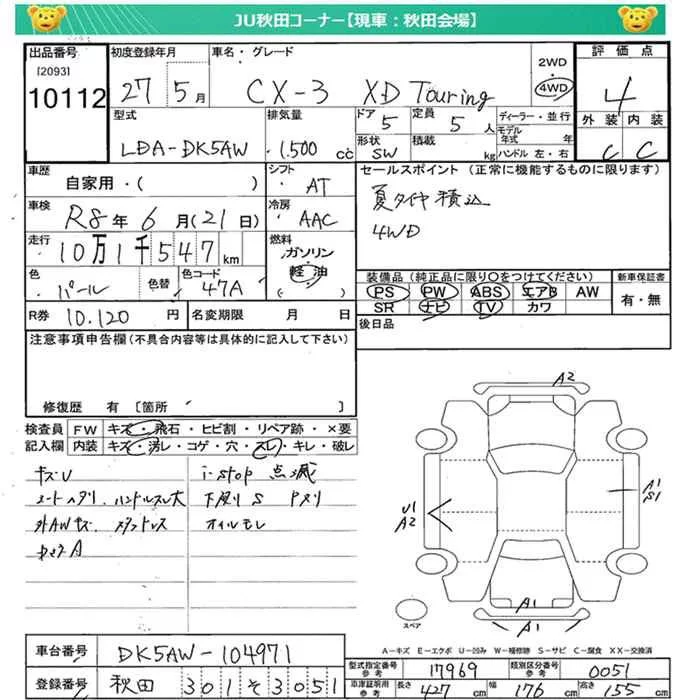 JU秋田コーナー【現車：秋田会場】
出品番号
[2093]
10112
初度登録年月
27 5月
車名・グレード
CX-3 XD Touring
2WD
4WD
評価点
4
外装 内装
C C
型式
LDA-DK5AW
排気量
1.500 cc
ドア
5
定員
5 人
ディーラー・並行
モデル年式 年
ハンドル 左・右
形状
SW
積載
kg
車歴
自家用・( )
シフト
AT
車検
R8年 6月(21日)
冷房
AAC
走行
10万1千547km
燃料
ガソリン
軽油
( )
色
パール
色替
色コード
47A
R券
10.120 円
名変期限 月 日
セールスポイント（正常に機能するものに限ります）
夏タイヤ積込
4WD
装備品（純正品に限り〇をつけてください）
PS PW ABS エアB AW
SR ナビ TV カワ
新車保証書
有・無
後日品
注意事項申告欄（不具合内容等は具体的に記入して下さい）
修復歴 有 〔箇所 〕
検査員記入欄
FW キズ・飛石・ヒビ割・リペア跡・×要
内装 キズ・汚レ・コゲ・穴・スレ・キレ・破レ
キズU i-stop 点滅
シートヘタリ ハンドルスレ大 下廻りS
外AWキズ
オイルモレ
A2
U1
A2
A1
S1
A1
A1
スペア
A－キズ E－エクボ U－凹み W－補修跡 S－サビ C－腐食 XX－交換済
車台番号
DK5AW-104971
登録番号
秋田 301 そ 3051
型式指定番号 参考
17969
類別区分番号 参考
0051
車庫証明用 参考
長さ 427cm 幅 176cm 高さ 155cm